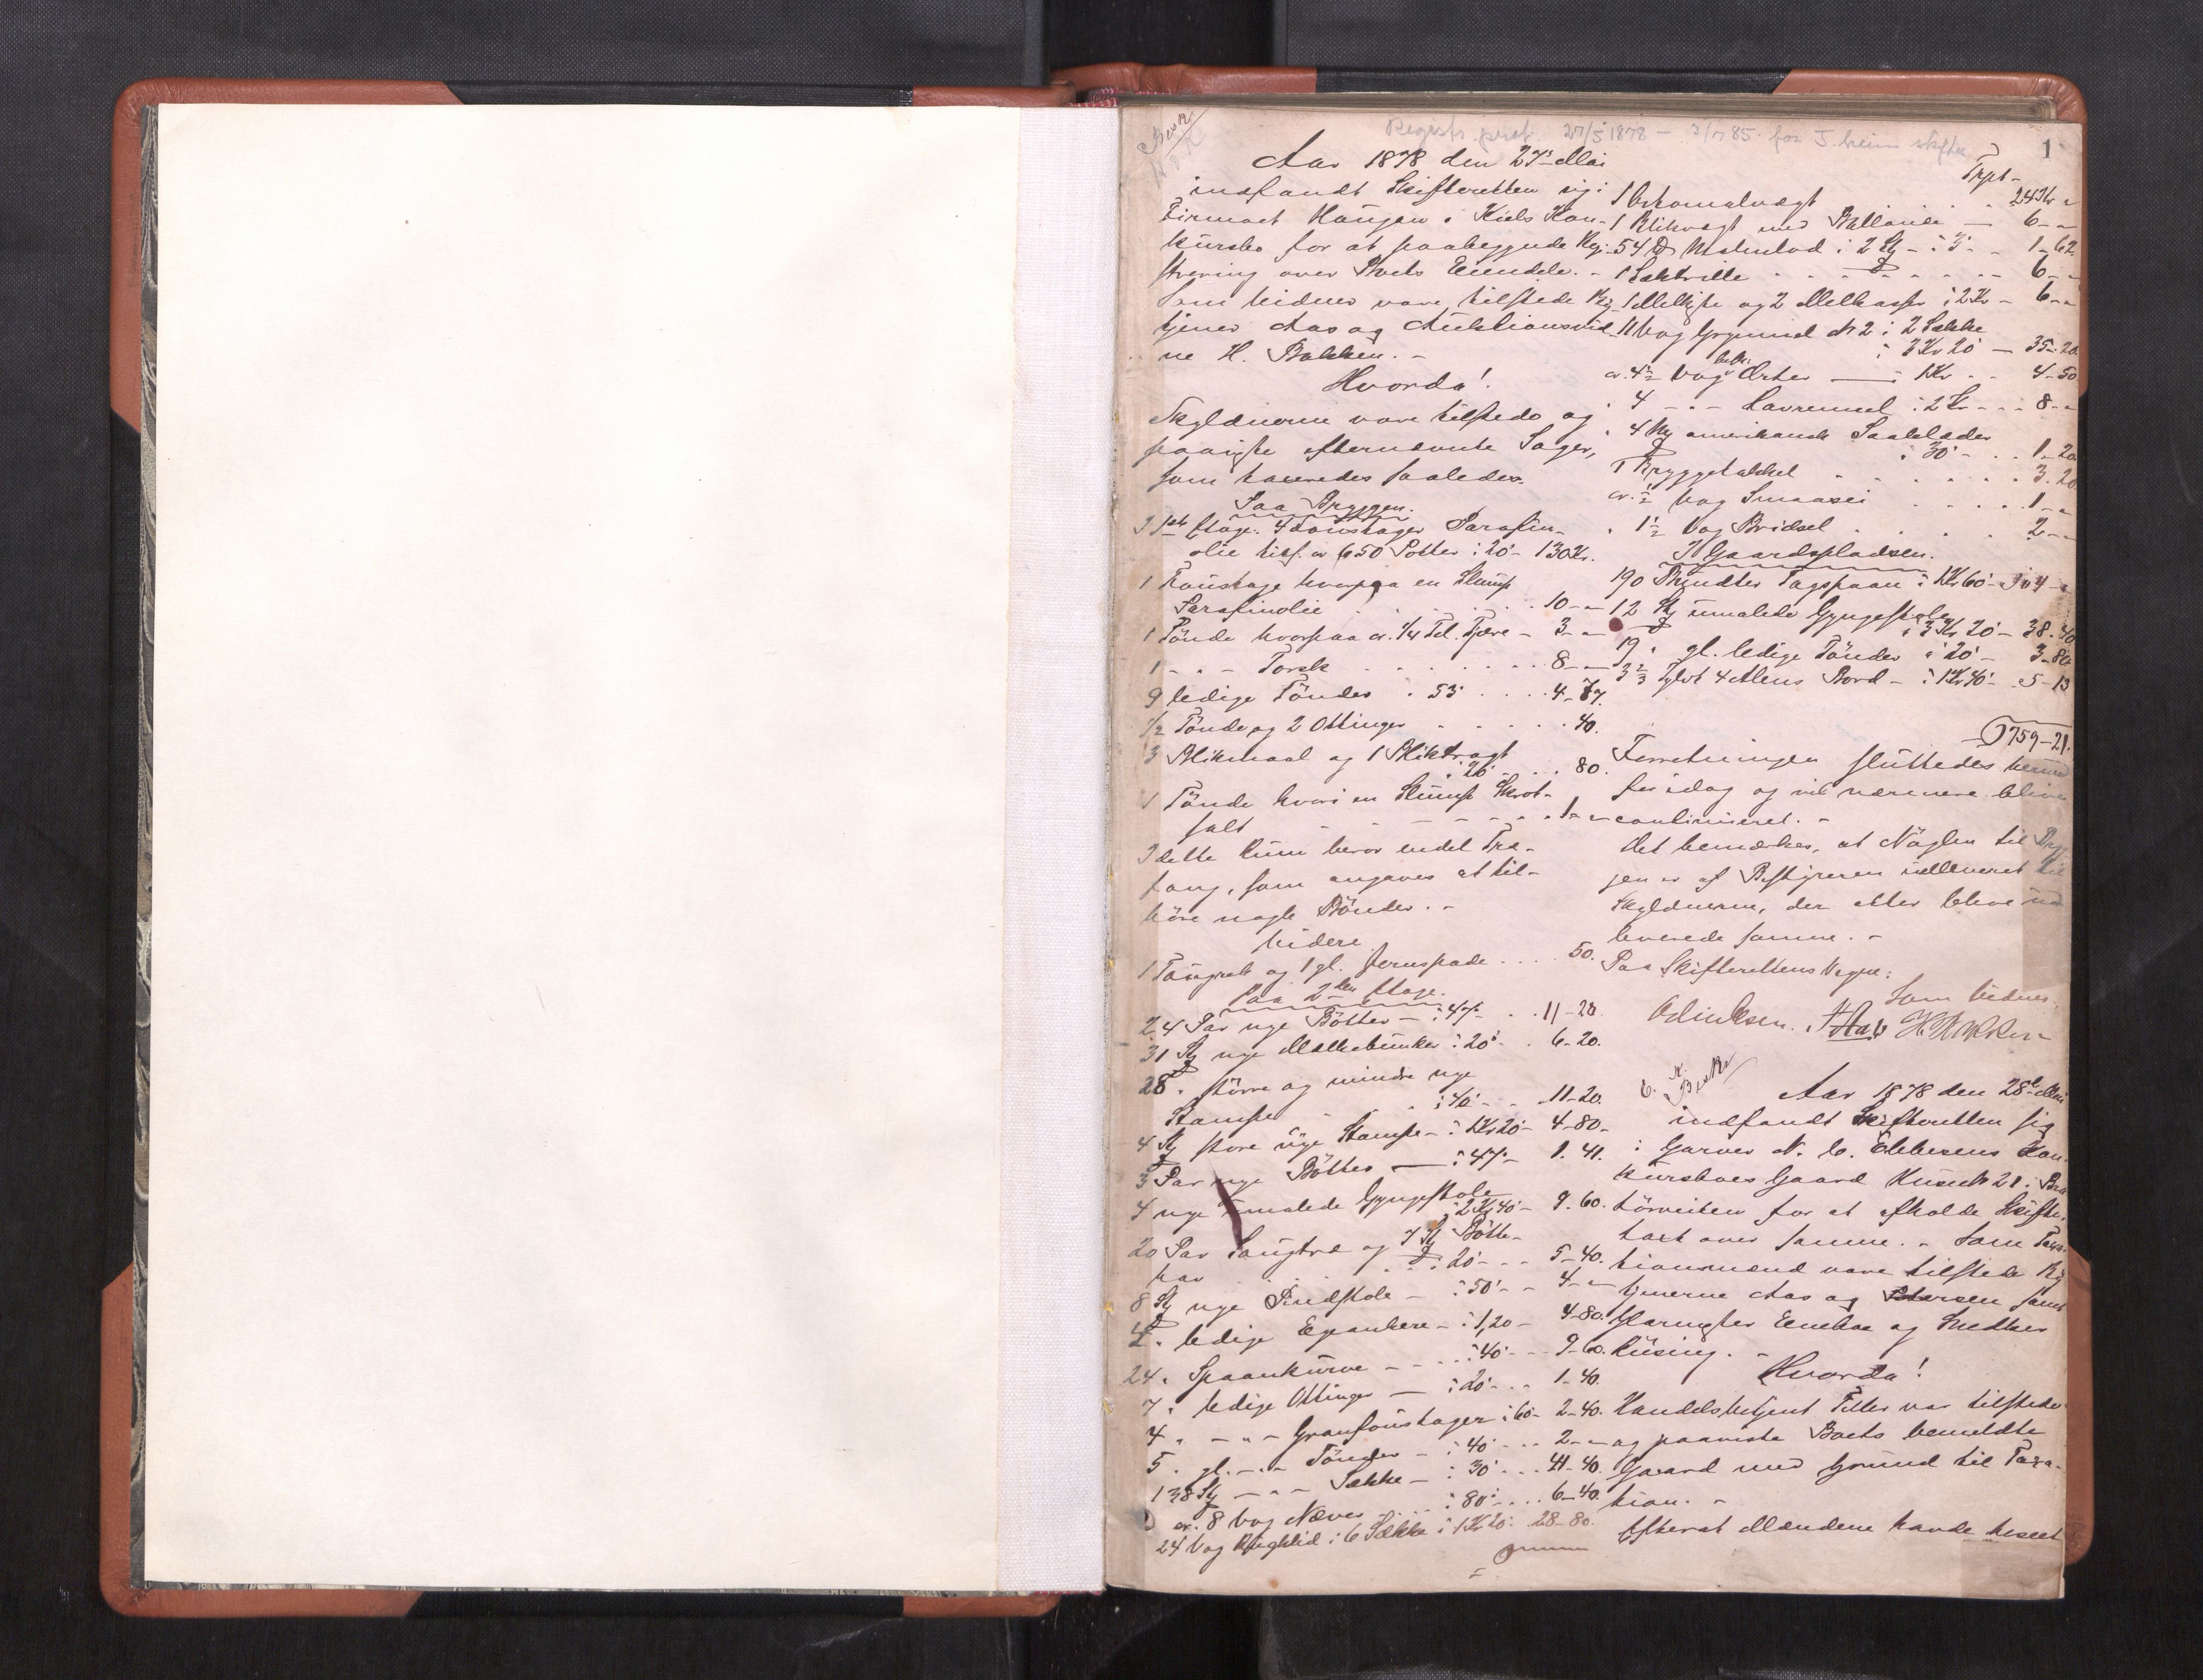 Registr. prot. 27/5 1878 - 3/7 85 for T.heim skifte
1
Besk.
Aar 1878 den 27 Mai
indfandt Skifteretten sig i
Firmaet Haugen & Kiels Kon-
kursbo for at paabegynde Reg-
strering over Boets Eiendele. -
Som Vidner vare tilstede
tjener Aas og Auktionsvid-
ne H. Bakken. -
Hvorda!
Skyldnerne vare tilstede og
paaviste efternævnte Sager,
som taxeredes saaledes.
Paa Bryggen.
I 1ste Etage. 4 Foustager Parafin-
olie tils. ca 650 Potter : 20 - 130 Kr.
1 Foustage hvorpaa en Slump
Parafinolie . . . 10 - "
1 Tønde hvorpaa ca. 1/4 Td. Tjære - 3 - "
1 - " - Torsk . . . 8 - "
9 ledige Tønder . 53 . . . 4-77.
1/2 Tønde og 2 Ottinger . . . 40.
3 Blikmaal og 1 Bliktragt
: 20 . . 80.
1 Tønde hvori en Slump Grov-
salt . . . 1 - "
I dette Rum beror endel Træ-
fang, som angaves at til-
høre nogle Bønder. -
Videre
1 Tangreb og 1 gl. Jernspade . . . 50.
Paa 2den Etage.
24 Par nye Bøtter - : 47 - . 11-28
31 St nye Melkebunker : 20 . 6-20.
28 " større og mindre nye
Stampe . . : 40 - . 11-20.
4 St store nye Stampe - : 1 Kr 20 - 4-80 -
3 Par nye Bøtter - : 47 - 1.41.
4 nye umalede Gyngestole
: 2 Kr 40 - 9.60.
20 Par Langtræ og 7 St Bøtte-
par . . : 20 - . . 5-40.
8 St nye Pindstole - : 50 - - 4 - "
4 " ledige Epankere - : 1,20 - 4-80.
24 " Spaankurve - - . : 40 - - 9-60.
7 " ledige Ottinger - : 20 - . . 1-40.
4 " - " - Granfoustager : 60 - 2-40.
5 " gl. - " - Tønder - : 40 - . . 2 - "
138 St - " - Sække - : 30 . . . 41-40.
ca. 8 Vog Næver . . : 80 . . . 6-40.
24 Vog Rugklid i 6 Sække : 1 Kr 20 - 28-80.
Trpt -
1 Bismalvægt . . 24 Kr "
1 Blikvægt med - 6 - "
54 Malmlod i 2 St - : 3 - . 1-62
1 Sæktrille . . . 6 - "
1 Melkiste og 2 Melkasser : 2 Kr - 6 - "
11 Vog Grynmel No 2 i 2 Sække
: 3 Kr 20 - 35-20.
ca. 4 1/2 Vog bek. Erter - : 1 Kr - - 4-50
" 4 - " - Havremel : 2 Kr - - - 8 - "
" 4 St amerikansk Saalelæder
: 30 - . . 1-20
1 Bryggetakkel . . . 3.20
ca. 1/2 Vog Smaasei . . . 1 - "
" 1 1/2 Vog Bridsel . . . 2 - "
I Gaardspladsen.
190 Bundter Tagspaan : 1 Kr 60 - 304 - "
12 St umalede Gyngestole
: 3 Kr 20 - 38-40
19 " gl. ledige Tønder : 20 - 3-80
3 2/3 Tylvt 4 Alens Bord - : 1 Kr 40 - 5-13
759-21.
Forretningen sluttedes herved
for idag og vil nærmere blive
continueret. -
Det bemærkes, at Nøglen til Bryg
gen er af Bestyreren udleveret til
Skyldnerne, der atter bleve ud
leverede samme. -
Paa Skifterettens Vegne:
Som Vidner:
Aas H. Bakken
Besk.
Aar 1878 den 28de Mai
indfandt Skifteretten sig
i Garver N. C. Ebbesens Kon-
kursboes Gaard Hus No 21 i Bra
tørveiten for at afholde Skifte-
taxt over samme. - Som Taxa-
tionsmænd vare tilstede
tjenerne Aas og Petersen samt
Glarmester Enebæ og Snedker
Rusing. -
Hvorda!
Handelsbetjent Tiller var tilstede
og paaviste Boets bemeldte
Gaard med Grund til Taxa-
tion. -
Efterat Mændene havde beseet